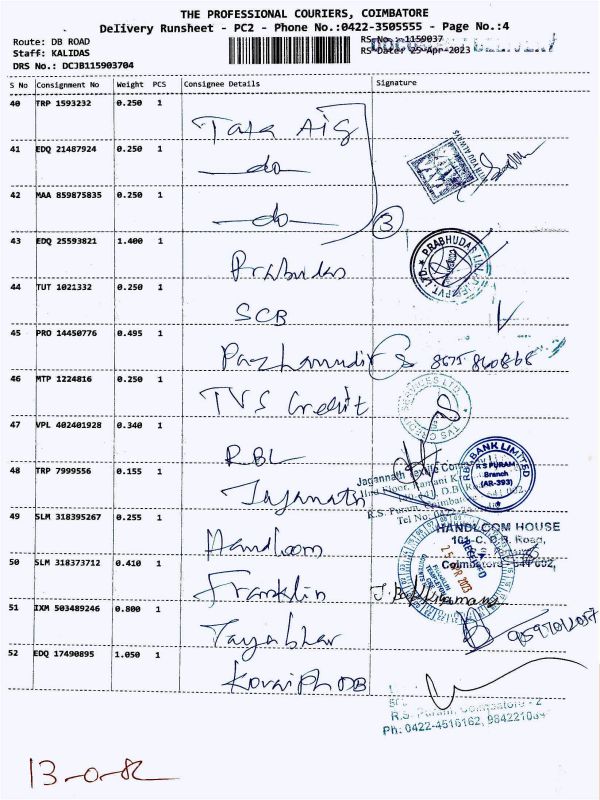 THE PROFESSIONAL COURIERS, COIMBATORE
Delivery Runsheet - PC2 - Phone No.:0422-3505555 - Page No.:4
Route: DB ROAD
Staff: KALIDAS
DRS No.: DCJB115903704
RS No.: 1159037
RS Date: 25-Apr-2023
S No Consignment No Weight PCS Consignee Details Signature
40 TRP 1593232 0.250 1 Tata AIG
41 EDQ 21487924 0.250 1 -do-
WITH YOU ALWAYS
42 MAA 859875835 0.250 1 -do- 3
43 EDQ 25593821 1.400 1 Prabudas
PRABHUDAS PVT. LTD.
44 TUT 1021332 0.250 1 SCB
45 PRO 14450776 0.495 1 8675860868
46 MTP 1224816 0.250 1 TVS Credit
TVS CREDIT SERVICES LTD.
47 VPL 402401928 0.340 1 RBL
RBL BANK LIMITED
R S PURAM
Branch
(AR-393)
48 TRP 7999556 0.155 1 Jaganath
Jagannath Textile
R.S. Puram, Coimbatore
Tel No: 0422
49 SLM 318395267 0.255 1 Handloom
HANDLOOM HOUSE
D.B. Road,
Coimbatore - 641 002,
50 SLM 318373712 0.410 1 Franklin
RECEIVED
25 APR 2023
51 IXM 503489246 0.800 1
52 EDQ 17490895 1.050 1 Kovai Ph DB
R.S. Puram, Coimbatore - 2
Ph: 0422-4516162,
13-0-82